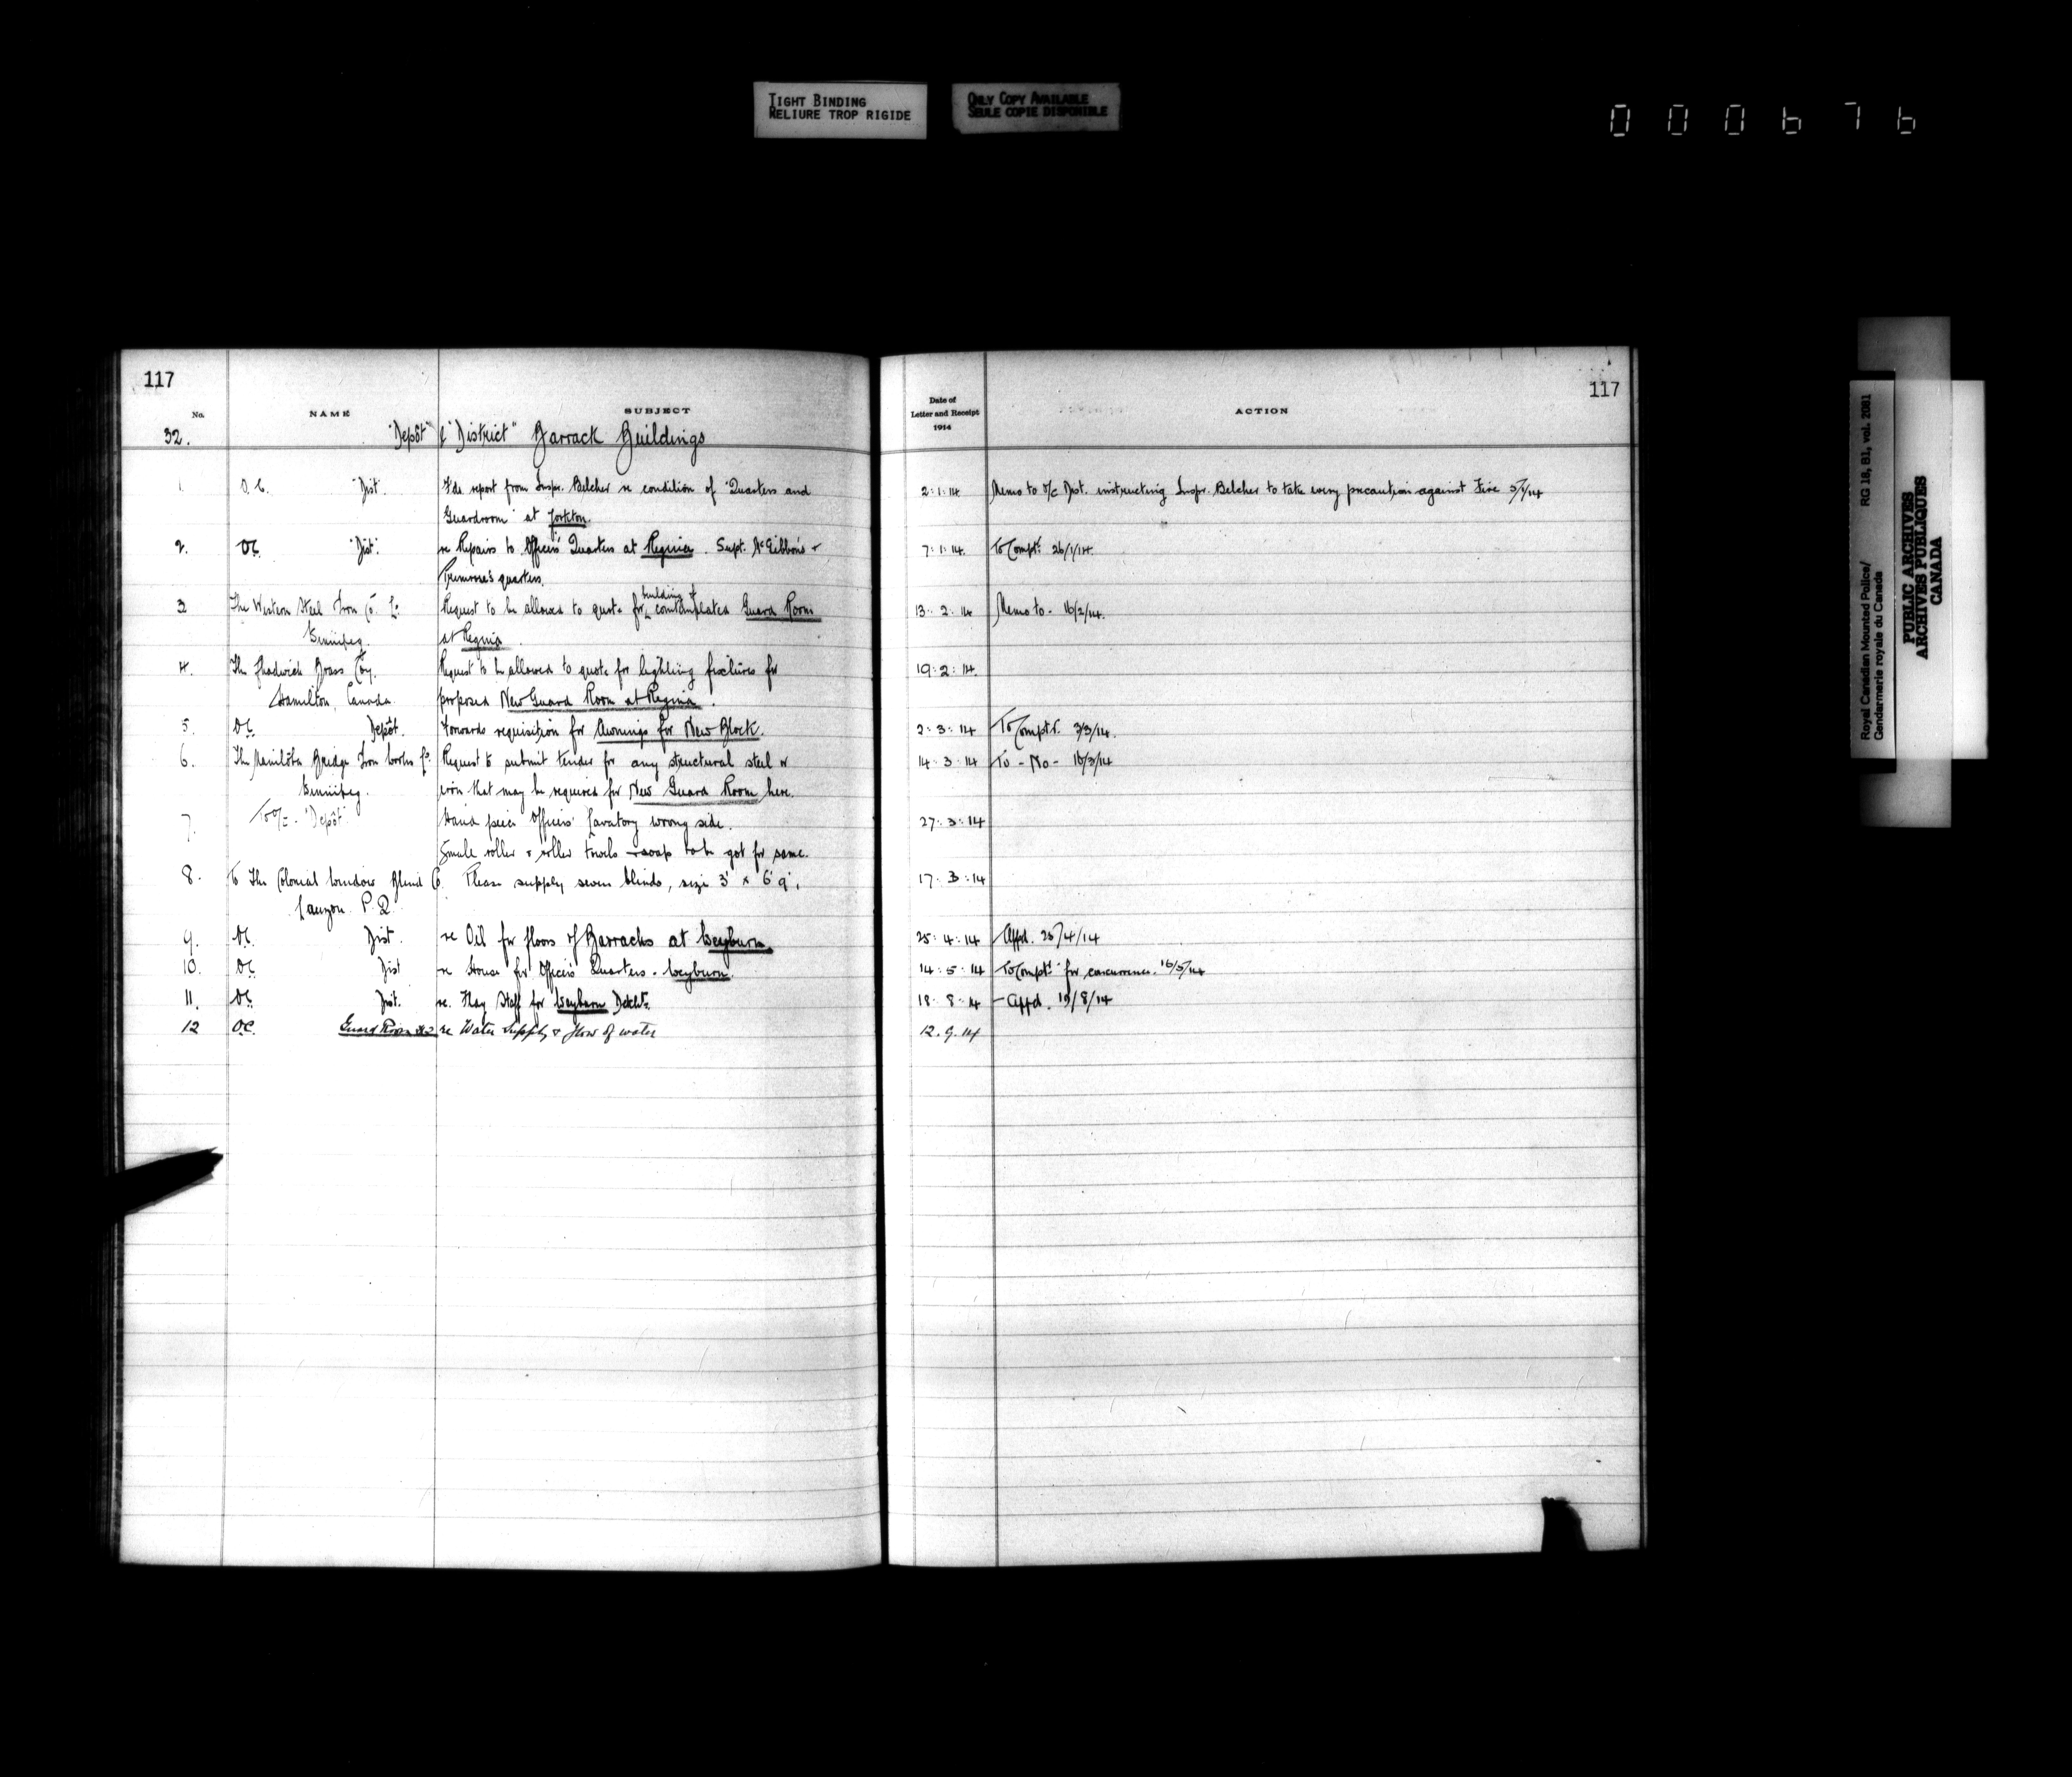 TIGHT BINDING
RELIURE TROP RIGIDE
ONLY COPY AVAILABLE
SEULE COPIE DISPONIBLE
000676
117
No. NAME SUBJECT
32. "Depôt" & "District" Barrack Buildings
1. O.C. "Dist. F'ds report from Inspr. Belcher re condition of "Quarters and
Guardroom" at Yorkton.
2. OC. "Dist." re Repairs to Officers' Quarters at Regina. Supt. McGibbon's +
Primrose's quarters.
3 The Western Steel & Iron Co. Winnipeg. Request to be allowed to quote for building of contemplated Guard Room
at Regina
4. The Chadwick Brass Coy. Request to be allowed to quote for lighting fixtures for
Hamilton, Canada. proposed New Guard Room at Regina.
5. OC. Depôt. Forwards requisition for Awnings for New Block.
6. The Manitoba Bridge & Iron Works Co. Request to submit tender for any structural steel or
Winnipeg. iron that may be required for New Guard Room here.
7. To O/C - "Depôt" Hand piece Officers' Lavatory wrong side.
Small roller & roller towels & soap to be got for same.
8. To The Colonial Window Blind Co. Please supply seven blinds, size 3' x 6'9".
Lauzon. P.Q.
9. OC. Dist. re Oil for floors of Barracks at Weyburn
10. OC. Dist re House for Officers' Quarters - Weyburn.
11. OC. Dist. re. Flag Staff for Weyburn Detcht.
12 O.C. Guard Room re Water Supply & flow of water
117
Date of
Letter and Receipt
1914
ACTION
2:1:14 Memo to O/C Dist. instructing Inspr. Belcher to take every precaution against Fire 5/1/14
7:1:14. To Compt. 26/1/14.
13:2:14 Memo to - 16/2/14.
19:2:14.
2:3:14 To Comptr. 3/3/14.
14:3:14 To - No - 16/3/14
27:3:14
17:3:14
25:4:14 Appd. 25/4/14
14:5:14 To Comptr for concurrence. 16/5/14
18:8:14 - Appd. 19/8/14
12.9.14
Royal Canadian Mounted Police/ RG 18, B1, vol. 2081
Gendarmerie royale du Canada
PUBLIC ARCHIVES
ARCHIVES PUBLIQUES
CANADA